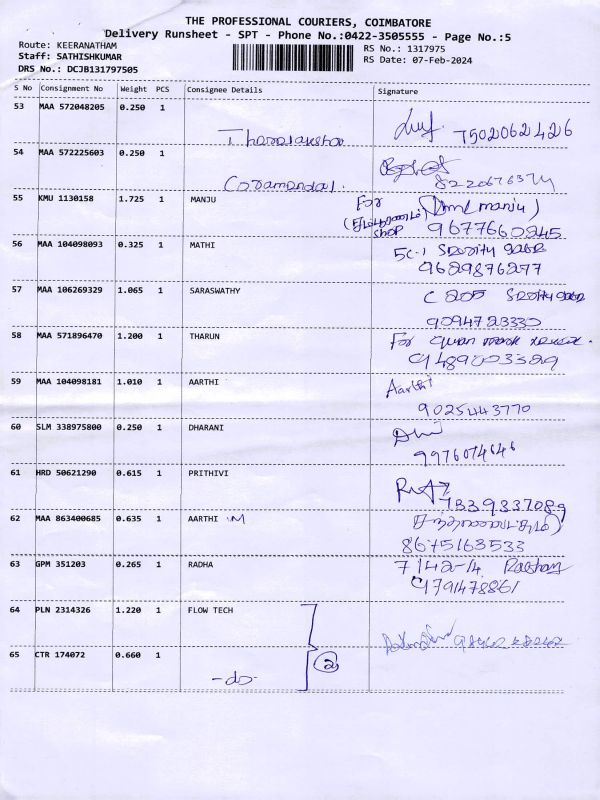 THE PROFESSIONAL COURIERS, COIMBATORE
Delivery Runsheet - SPT - Phone No.:0422-3505555 - Page No.:5
Route: KEERANATHAM
Staff: SATHISHKUMAR
DRS No.: DCJB131797505
RS No.: 1317975
RS Date: 07-Feb-2024
S No Consignment No Weight PCS Consignee Details Signature
53 MAA 572048205 0.250 1
7502062426
54 MAA 572225603 0.250 1
Coramandal.
8220676374
55 KMU 1130158 1.725 1 MANJU For (manju)
shop 9677660245
56 MAA 104098093 0.325 1 MATHI 5C-1
9629876277
57 MAA 106269329 1.065 1 SARASWATHY C 205
9094723330
58 MAA 571896470 1.200 1 THARUN For
9489003389
59 MAA 104098181 1.010 1 AARTHI Aarthi
9025443770
60 SLM 338975800 0.250 1 DHARANI
9976074646
61 HRD 50621290 0.615 1 PRITHIVI
7339337089
62 MAA 863400685 0.635 1 AARTHI M
8675163533
63 GPM 351203 0.265 1 RADHA 7142-14
9791478861
64 PLN 2314326 1.220 1 FLOW TECH
65 CTR 174072 0.660 1
-do- 2